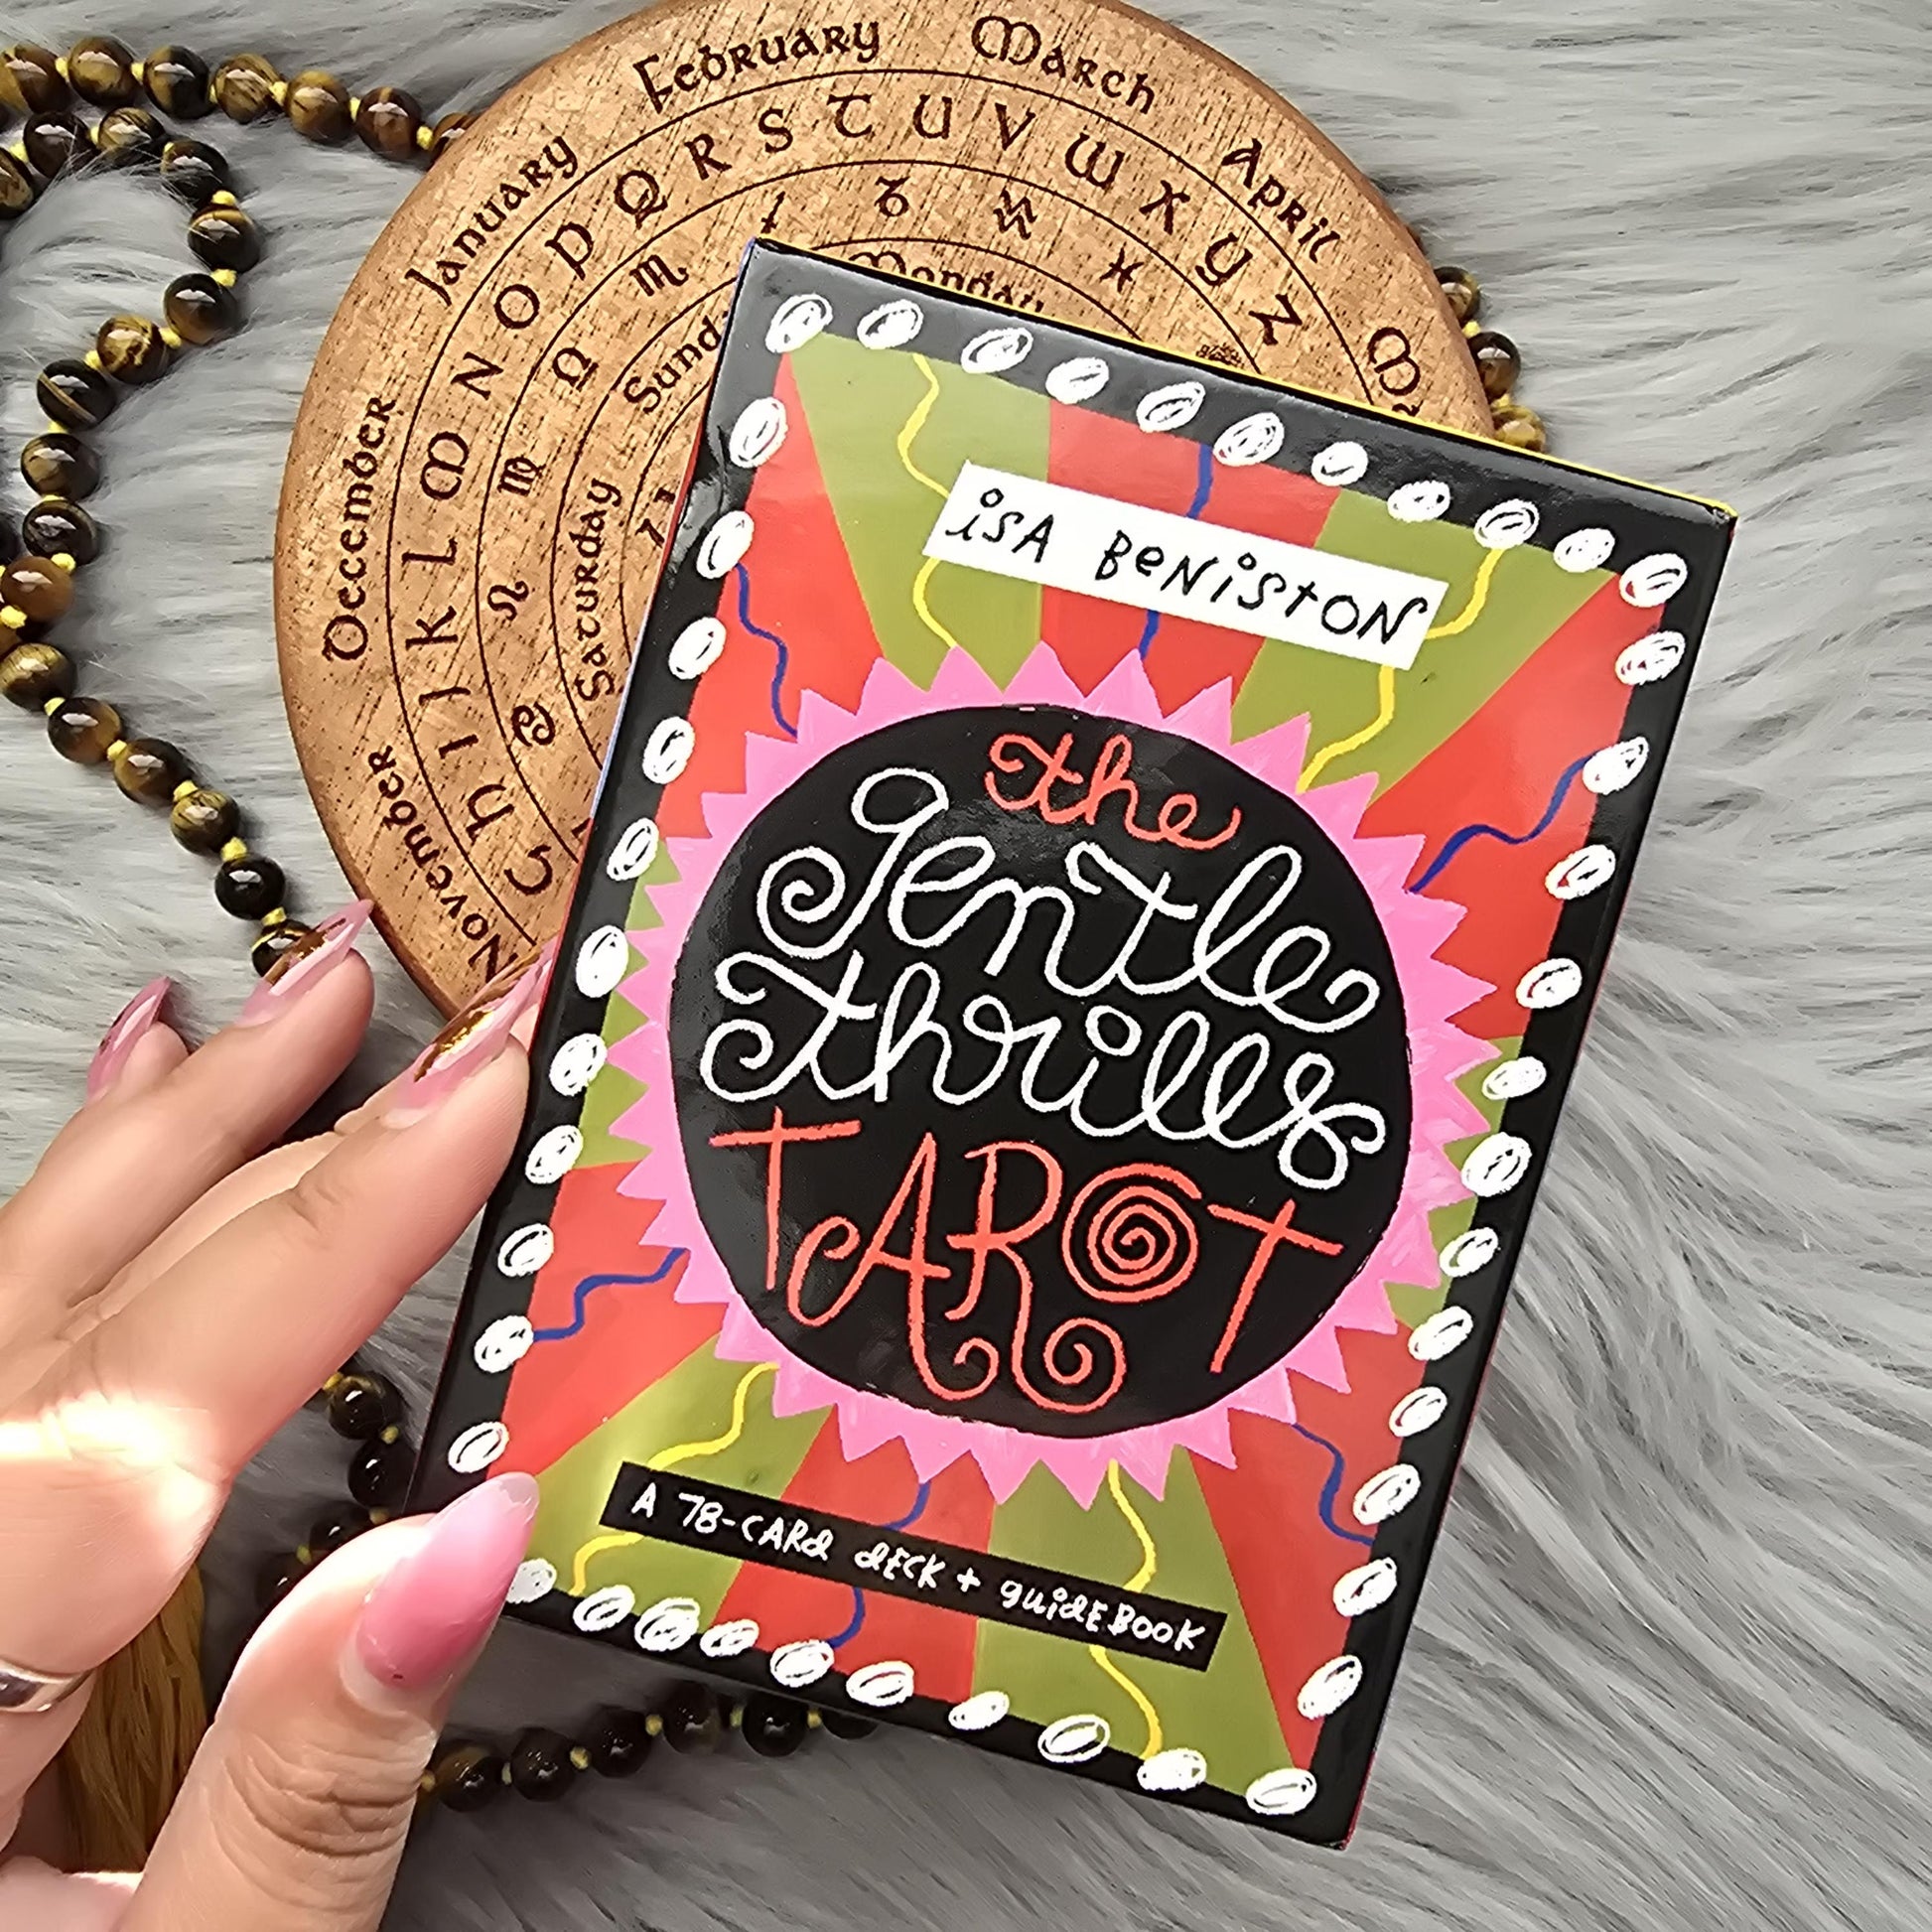 January February March April
December
November
P Q R S T U V W X Y Z
C h I J K L M N O
Monday
Saturday
isA BeNistON
the
gentle
thrills
tAROT
A 78-CARd dECK + guidEBOOK